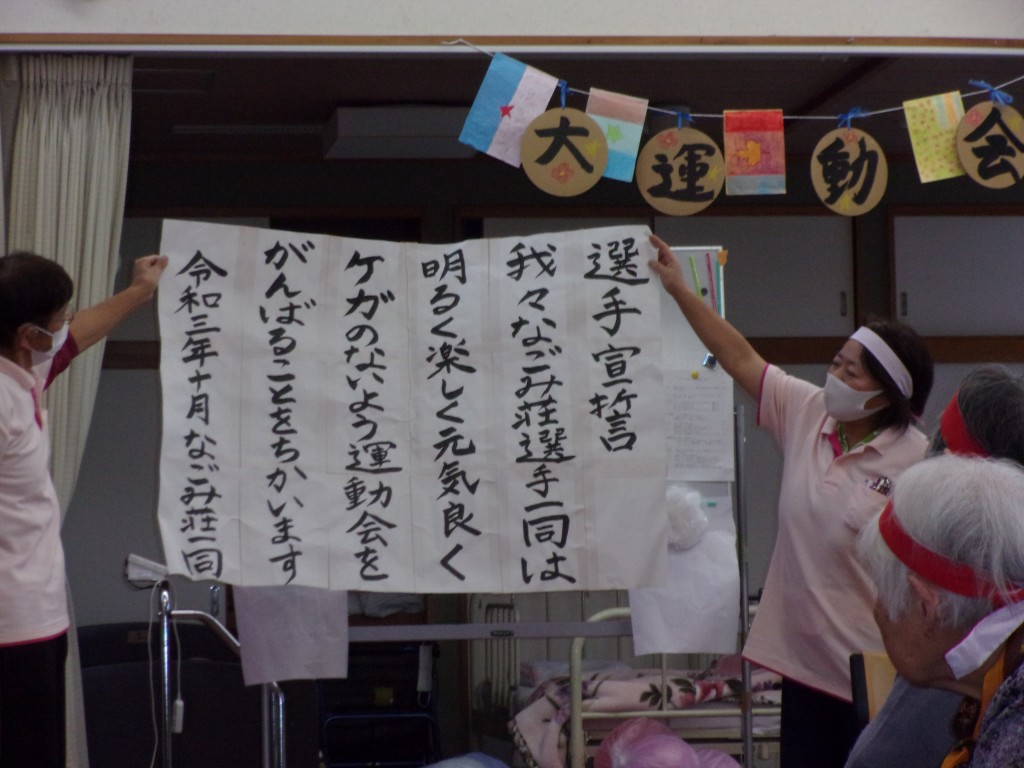 大運動会
選手宣誓
我々なごみ荘選手一同は
明るく楽しく元気良く
ケガのないよう運動会を
がんばることをちかいます
令和三年十月なごみ荘一同